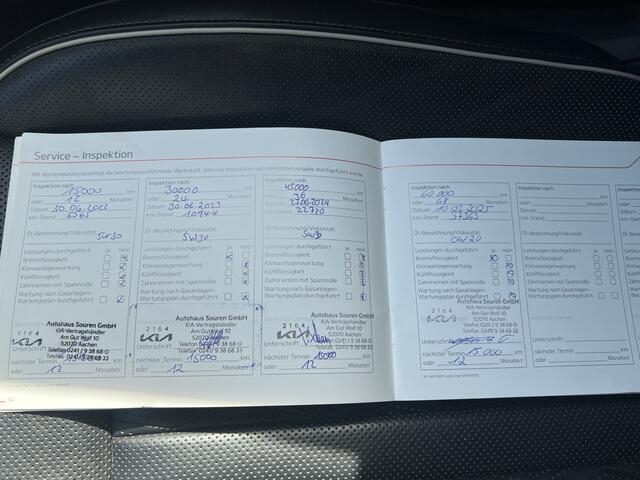 Service – Inspektion
Mit Abstempelung bestätigt die wartungsausführende Werkstatt, dass die Inspektion nach Herstellervorgabe durchgeführt wurde.
Inspektion nach
15000 km
oder 12 Monaten
Datum 30.06.2022
km-Stand
Öl-Bezeichnung/Viskosität:
5W30
Leistungen durchgeführt: ja nein
Bremsflüssigkeit
Klimaanlagenwartung
Kühlflüssigkeit
Zahnriemen mit Spannrolle
Wartung nach Gasanlagen-
Wartungsplan durchgeführt
2164
KIA
Autohaus Souren GmbH
KIA Vertragshändler
Am Gut Wolf 10
52070 Aachen
Telefon 0241/9 38 68-0
Telefax 0241/9 38 68 33
nächster Termin km
oder 12 Monaten
Inspektion nach
30000 km
oder 24 Monaten
Datum 30.06.2023
km-Stand 10944
Öl-Bezeichnung/Viskosität:
5W30
Leistungen durchgeführt: ja nein
Bremsflüssigkeit
Klimaanlagenwartung
Kühlflüssigkeit
Zahnriemen mit Spannrolle
Wartung nach Gasanlagen-
Wartungsplan durchgeführt
2164
KIA
Autohaus Souren GmbH
KIA Vertragshändler
Am Gut Wolf 10
52070 Aachen
Unterschrift Telefon 0241/9 38 68-0
Telefax 0241/9 38 68 33
nächster Termin 15000 km
oder 12 Monaten
Inspektion nach
45000 km
oder 36 Monaten
Datum 27.06.2024
km-Stand 22720
Öl-Bezeichnung/Viskosität:
5W30
Leistungen durchgeführt: ja nein
Bremsflüssigkeit
Klimaanlagenwartung
Kühlflüssigkeit
Zahnriemen mit Spannrolle
Wartung nach Gasanlagen-
Wartungsplan durchgeführt
2164
KIA
Autohaus Souren GmbH
KIA Vertragshändler
Am Gut Wolf 10
52070 Aachen
Unterschrift Telefon 0241/9 38 68-0
Telefax 0241/9 38 68 33
nächster Termin 15000 km
oder 12 Monaten
Inspektion nach
60.000 km
oder 48 Monaten
Datum
km-Stand 37363
Öl-Bezeichnung/Viskosität:
0W20
Leistungen durchgeführt: ja nein
Bremsflüssigkeit
Klimaanlagenwartung
Kühlflüssigkeit
Zahnriemen mit Spannrolle
Wartung nach Gasanlagen-
Wartungsplan durchgeführt
Unterschrift
nächster Termin 15 000 km
oder 12 Monaten
Inspektion nach
oder
Datum
km-Stand
Öl-Bezeichnung/Viskosität:
Leistungen durchgeführt:
Bremsflüssigkeit
Klimaanlagenwartung
Kühlflüssigkeit
Zahnriemen mit Spannrolle
Wartung nach Gasanlagen-
Wartungsplan durchgeführt
Unterschrift
nächster Termin
oder